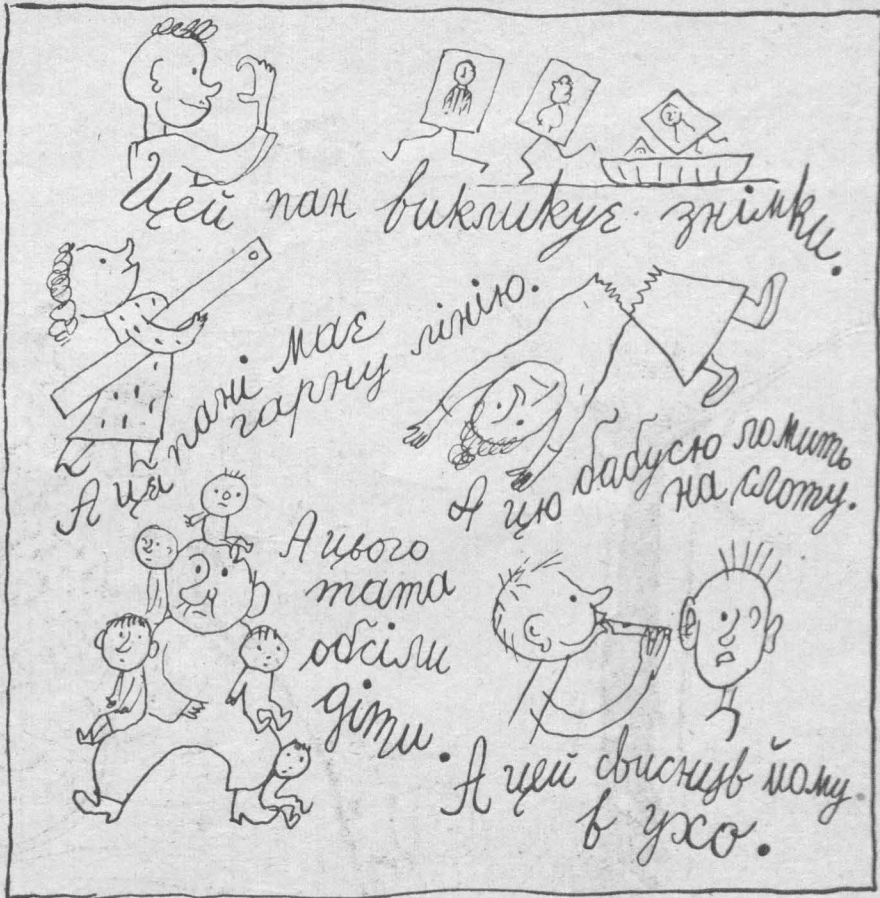 Цей пан викликує знімки.
А ця пані має
гарну лінію.
А цю бабусю ломить
на слоту.
А цього
тата
обсіли
діти.
А цей свиснув йому
в ухо.